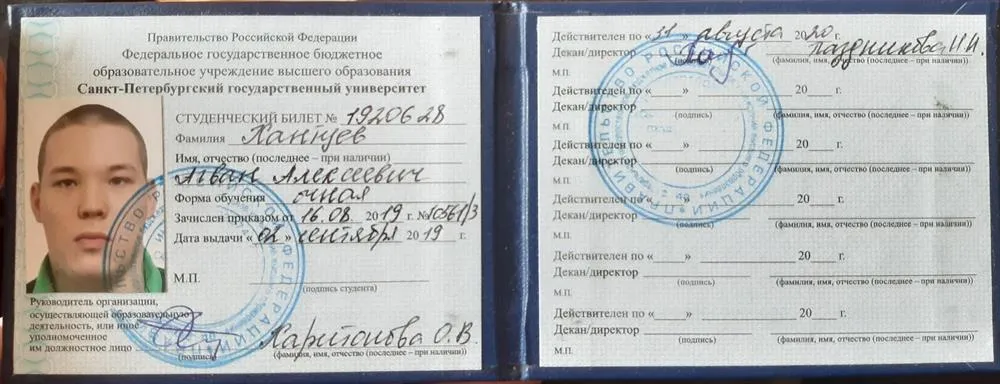 Правительство Российской Федерации
Федеральное государственное бюджетное
образовательное учреждение высшего образования
Санкт-Петербургский государственный университет
СТУДЕНЧЕСКИЙ БИЛЕТ № 1920628
Фамилия Хантуев
Имя, отчество (последнее – при наличии)
Агван Алексеевич
Форма обучения очная
Зачислен приказом от 16.08. 2019 г. № 10561/3
Дата выдачи «02» сентября 2019 г.
М.П.
(подпись студента)
Руководитель организации,
осуществляющей образовательную
деятельность, или иное
уполномоченное
им должностное лицо
(подпись)
Харитонова О.В.
(фамилия, имя, отчество (последнее – при наличии))
Действителен по «31» августа 2020 г.
Декан/директор Паздникова Н.И.
(фамилия, имя, отчество (последнее – при наличии))
М.П.
Действителен по «____» 20____ г.
Декан/директор
(подпись) (фамилия, имя, отчество (последнее – при наличии))
М.П.
Действителен по «____» 20____ г.
Декан/директор
(подпись) (фамилия, имя, отчество (последнее – при наличии))
М.П.
Действителен по «____» 20____ г.
Декан/директор
(подпись) (фамилия, имя, отчество (последнее – при наличии))
М.П.
Действителен по «____» 20____ г.
Декан/директор
(подпись) (фамилия, имя, отчество (последнее – при наличии))
М.П.
Действителен по «____» 20____ г.
Декан/директор
(подпись) (фамилия, имя, отчество (последнее – при наличии))
М.П.